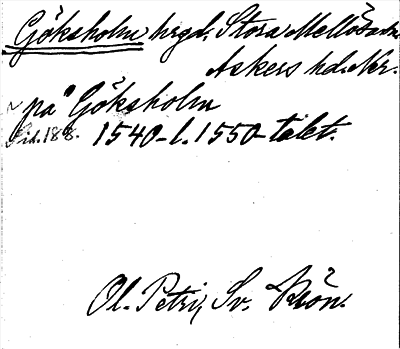 Göksholm hrgd, Stora Mellösa sn.
Askers hd. Nke.
~ på "Göksholm
Sid. 188. 1540- l. 1550-talet.
Ol. Petri, Sv. Krön.